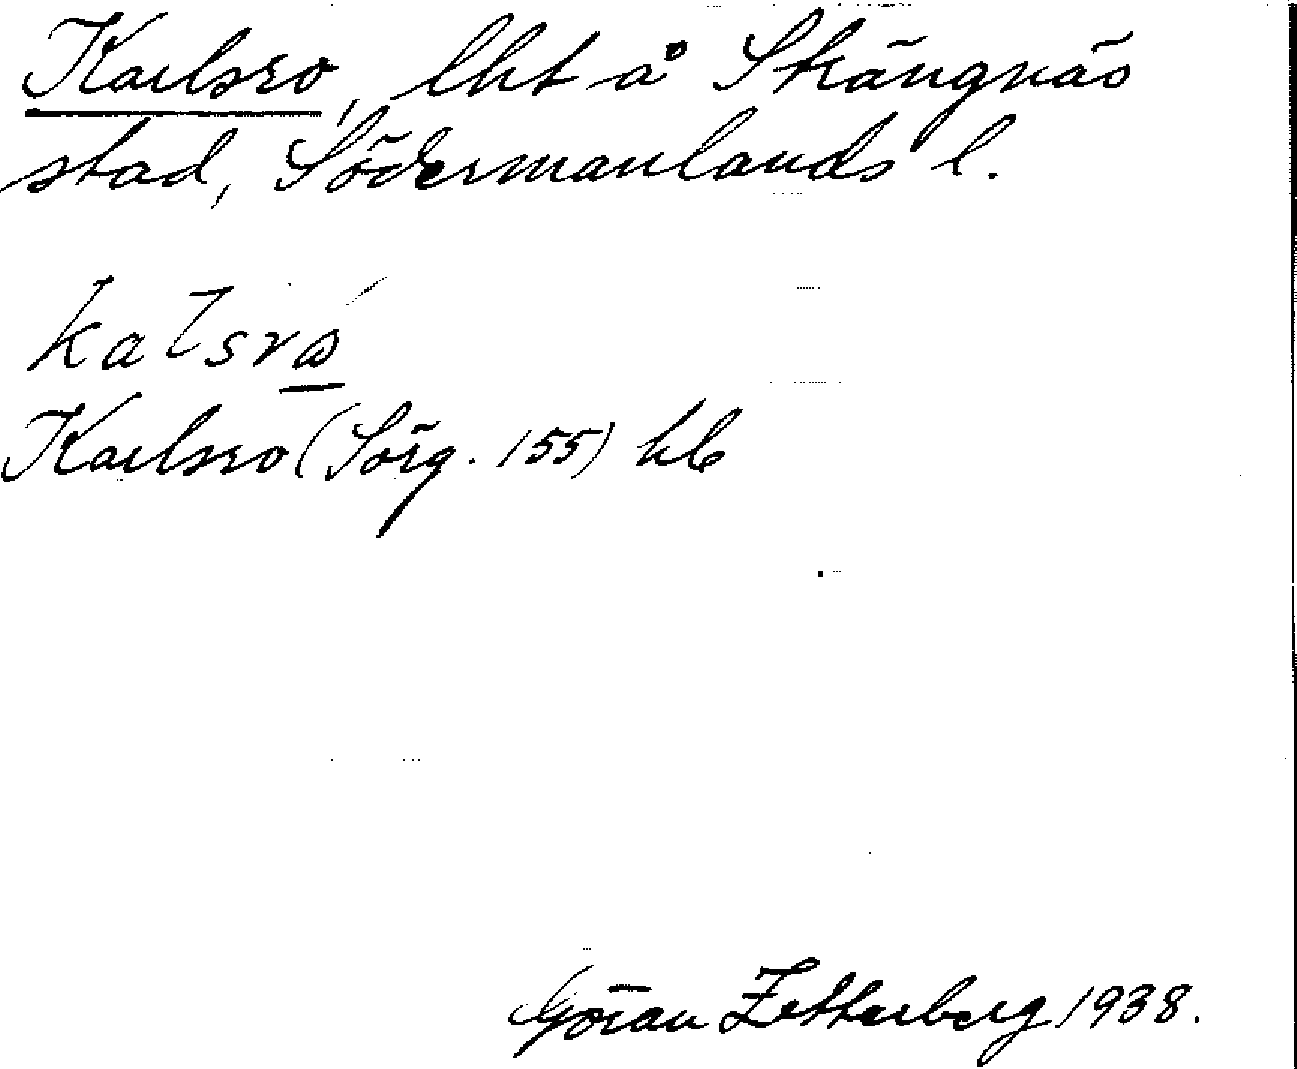 Karlsro, lht å Strängnäs
stad, Södermanlands l.
Karlsro (Sörg. 155) hb
Göran Zetterberg 1938.